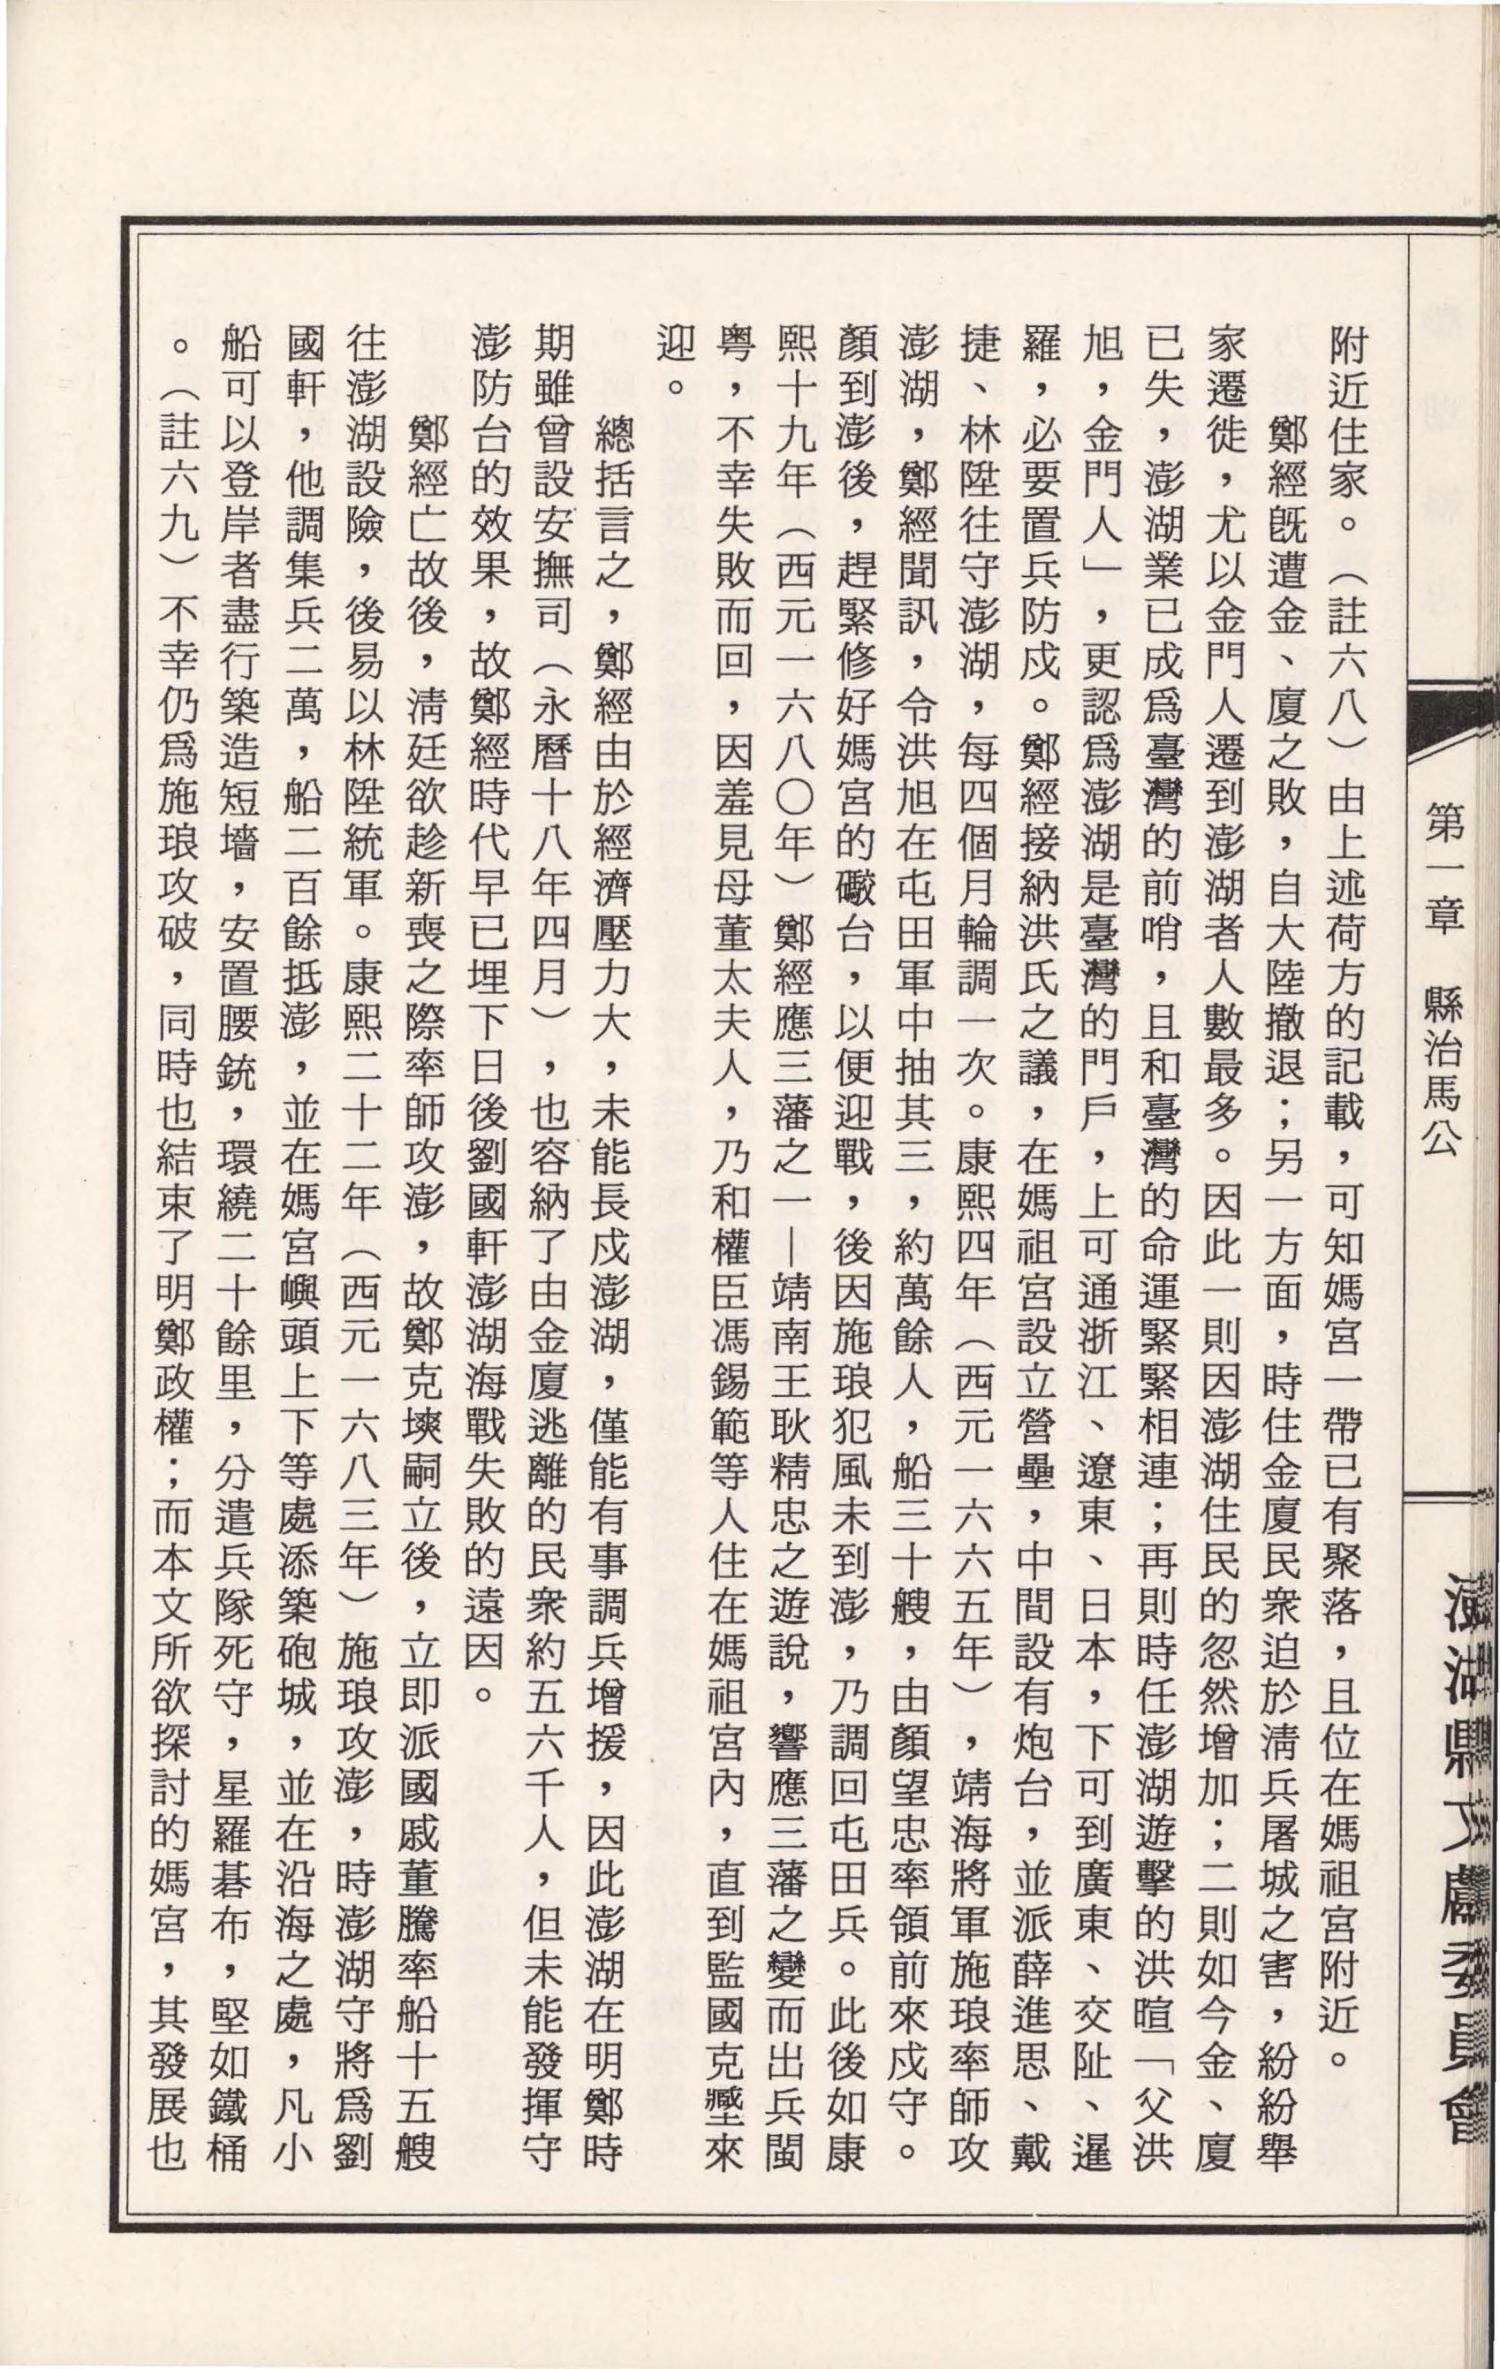 第一章　縣治馬公
澎湖縣文獻委員會
附近住家。（註六八）由上述荷方的記載，可知媽宮一帶已有聚落，且位在媽祖宮附近。
鄭經既遭金、廈之敗，自大陸撤退；另一方面，時住金廈民衆迫於淸兵屠城之害，紛紛舉
家遷徙，尤以金門人遷到澎湖者人數最多。因此一則因澎湖住民的忽然增加；二則如今金、廈
已失，澎湖業已成爲臺灣的前哨，且和臺灣的命運緊緊相連；再則時任澎湖遊擊的洪暄「父洪
旭，金門人」，更認爲澎湖是臺灣的門戶，上可通浙江、遼東、日本，下可到廣東、交阯、暹
羅，必要置兵防戍。鄭經接納洪氏之議，在媽祖宮設立營壘，中間設有炮台，並派薛進思、戴
捷、林陞往守澎湖，每四個月輪調一次。康熙四年（西元一六六五年），靖海將軍施琅率師攻
澎湖，鄭經聞訊，令洪旭在屯田軍中抽其三，約萬餘人，船三十艘，由顏望忠率領前來戍守。
顏到澎後，趕緊修好媽宮的礮台，以便迎戰，後因施琅犯風未到澎，乃調回屯田兵。此後如康
熙十九年（西元一六八〇年）鄭經應三藩之一—靖南王耿精忠之遊說，響應三藩之變而出兵閩
粤，不幸失敗而回，因羞見母董太夫人，乃和權臣馮錫範等人住在媽祖宮內，直到監國克𡒉來
迎。
總括言之，鄭經由於經濟壓力大，未能長戍澎湖，僅能有事調兵增援，因此澎湖在明鄭時
期雖曾設安撫司（永曆十八年四月），也容納了由金廈逃離的民衆約五六千人，但未能發揮守
澎防台的效果，故鄭經時代早已埋下日後劉國軒澎湖海戰失敗的遠因。
鄭經亡故後，淸廷欲趁新喪之際率師攻澎，故鄭克塽嗣立後，立即派國戚董騰率船十五艘
往澎湖設險，後易以林陞統軍。康熙二十二年（西元一六八三年）施琅攻澎，時澎湖守將爲劉
國軒，他調集兵二萬，船二百餘抵澎，並在媽宮嶼頭上下等處添築砲城，並在沿海之處，凡小
船可以登岸者盡行築造短墻，安置腰銃，環繞二十餘里，分遣兵隊死守，星羅碁布，堅如鐵桶
。（註六九）不幸仍爲施琅攻破，同時也結束了明鄭政權；而本文所欲探討的媽宮，其發展也